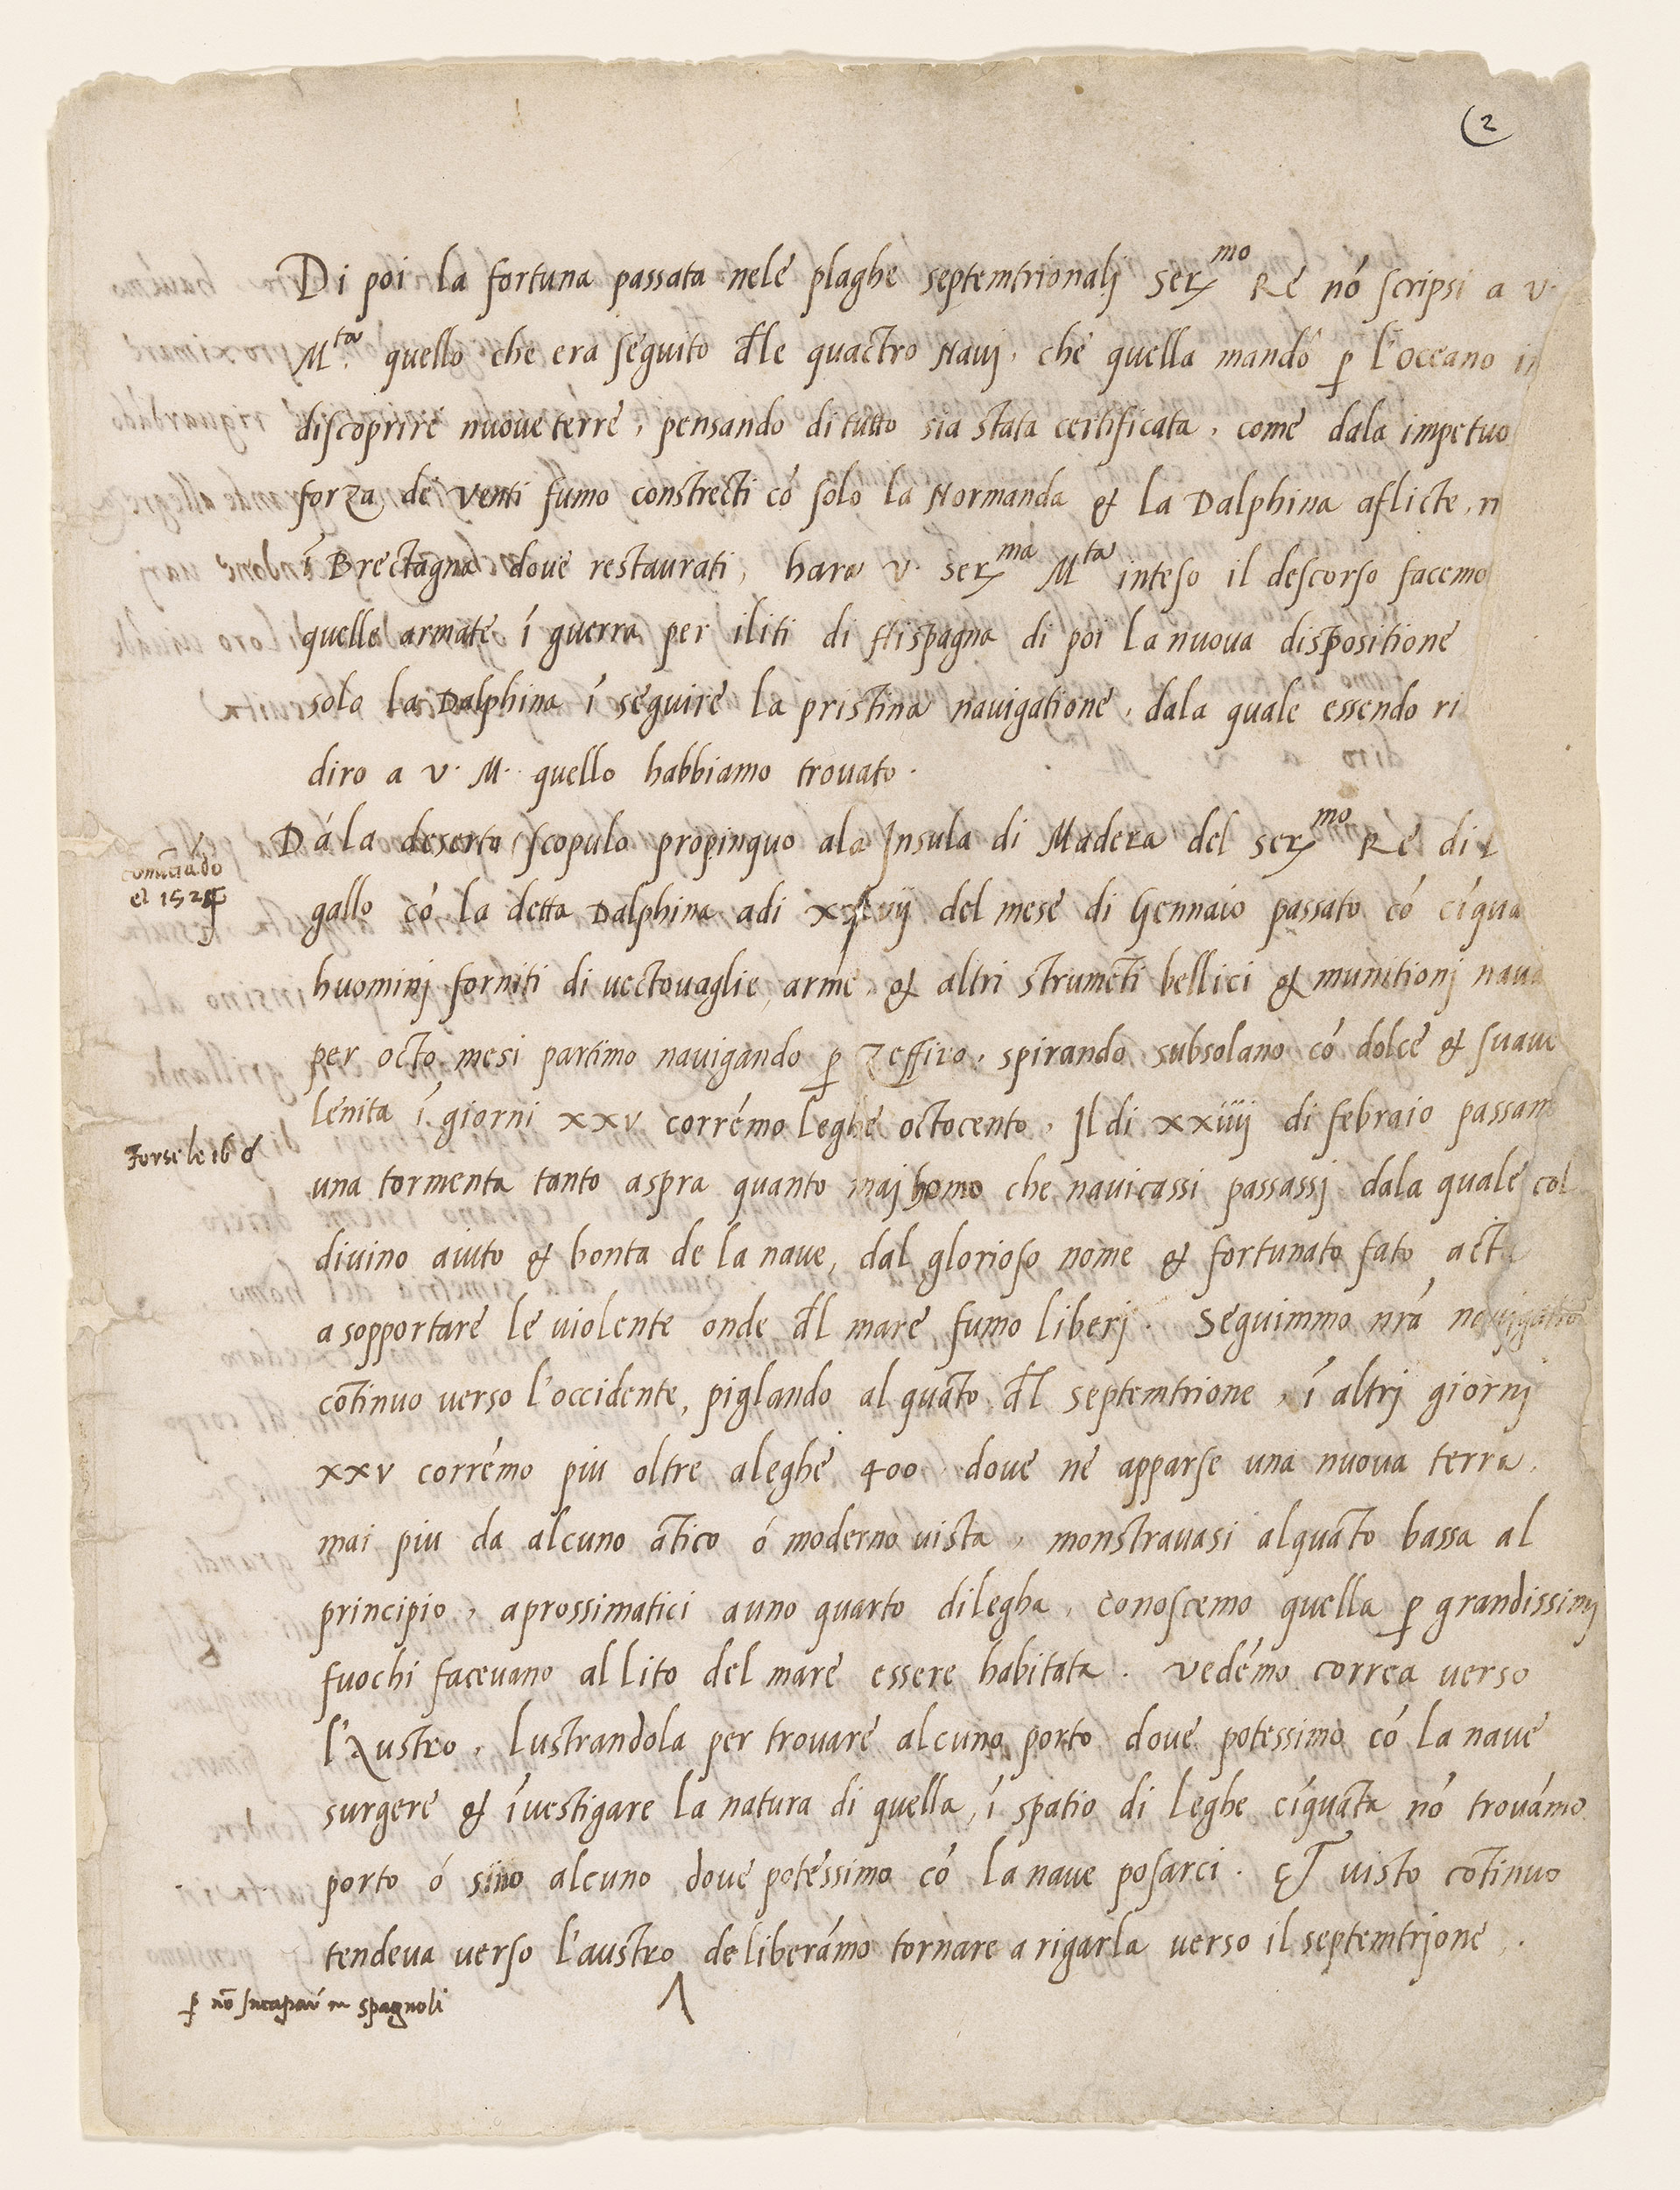 (2
Di poi la fortuna passata nele plaghe septemtrionalj Ser.mo Re nó scripsi a v.
M.ta quello che era seguito dłle quactro Navj, che quella mandò p̱ l'Oceano in
discoprire nuove terre, pensando di tutto sia stata certificata, come dala impetuo
forza de' venti fumo constrecti có solo la Normanda & la Dalphina aflicte,
ī Brectagna dove restaurati, hara v. Ser.ma M.ta inteso il descorso facemo
quelle armate ī guerra per iliti di Hispagna di poi la nuova dispositione
sola la Dalphina ī seguire la pristina navigatione, dala quale essendo ri
diro a v. M. quello habbiamo trovato.
Dála deserto scopulo propinquo ala Insula di Madera del Ser.mo Re di
comīciādo
el 1524
gallo có la detta Dalphina adi xxvii del mese di Gennaio passato có cīqua
huominj forniti di vectovaglie, arme & altri strumēti bellici & munitionj nava
per octo mesi partimo navigando p̱ Zeffiro, spirando subsolano có dolce & suave
lenita ī giorni xxv corrémo leghe octocento. Il di xxiiii di febraio passam
Forse le 16 d
una tormenta tanto aspra quanto mai homo che navicassi passassj dala quale col
divino aiuto & bonta de la nave, dal glorioso nome & fortunato fato acta
a sopportare le violente onde dłl mare fumo liberj. Seguimmo nrā navigatio
cōtinuo verso l'occidente, piglando alquāto dłl septemtrione, ī altrj giornj
xxv corrémo piu oltre aleghe 400 dove ne apparse una nuova terra,
mai piu da alcuno ātico ó moderno vista, monstravasi alquāto bassa al
principio, aprossimatici auno quarto dilegha, conoscemo quella p̱ grandissimj
fuochi facevano al lito del mare essere habitata. vedémo correa verso
l'Austro, lustrandola per trovare alcuno porto dove potessimo có la nave
surgere & īvestigare la natura di quella, ī spatio di leghe cīquāta nó trovámo
porto ó sino alcuno dove potéssimo có la nave posarci. Et visto cōtinuo
tendeva verso l'austro deliberámo tornare a rigarla verso il septemtrione,
p̱ nō spagnoli